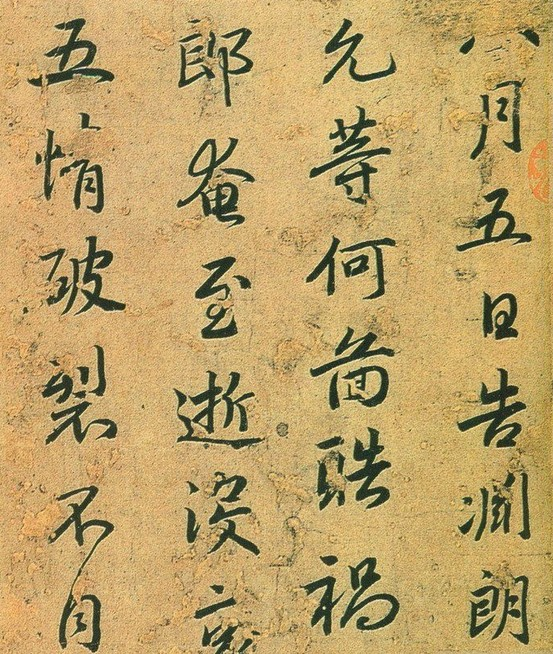 八月五日告淵朗
允等何啚酷禍
郎奄至逝沒哀
五情破裂不自